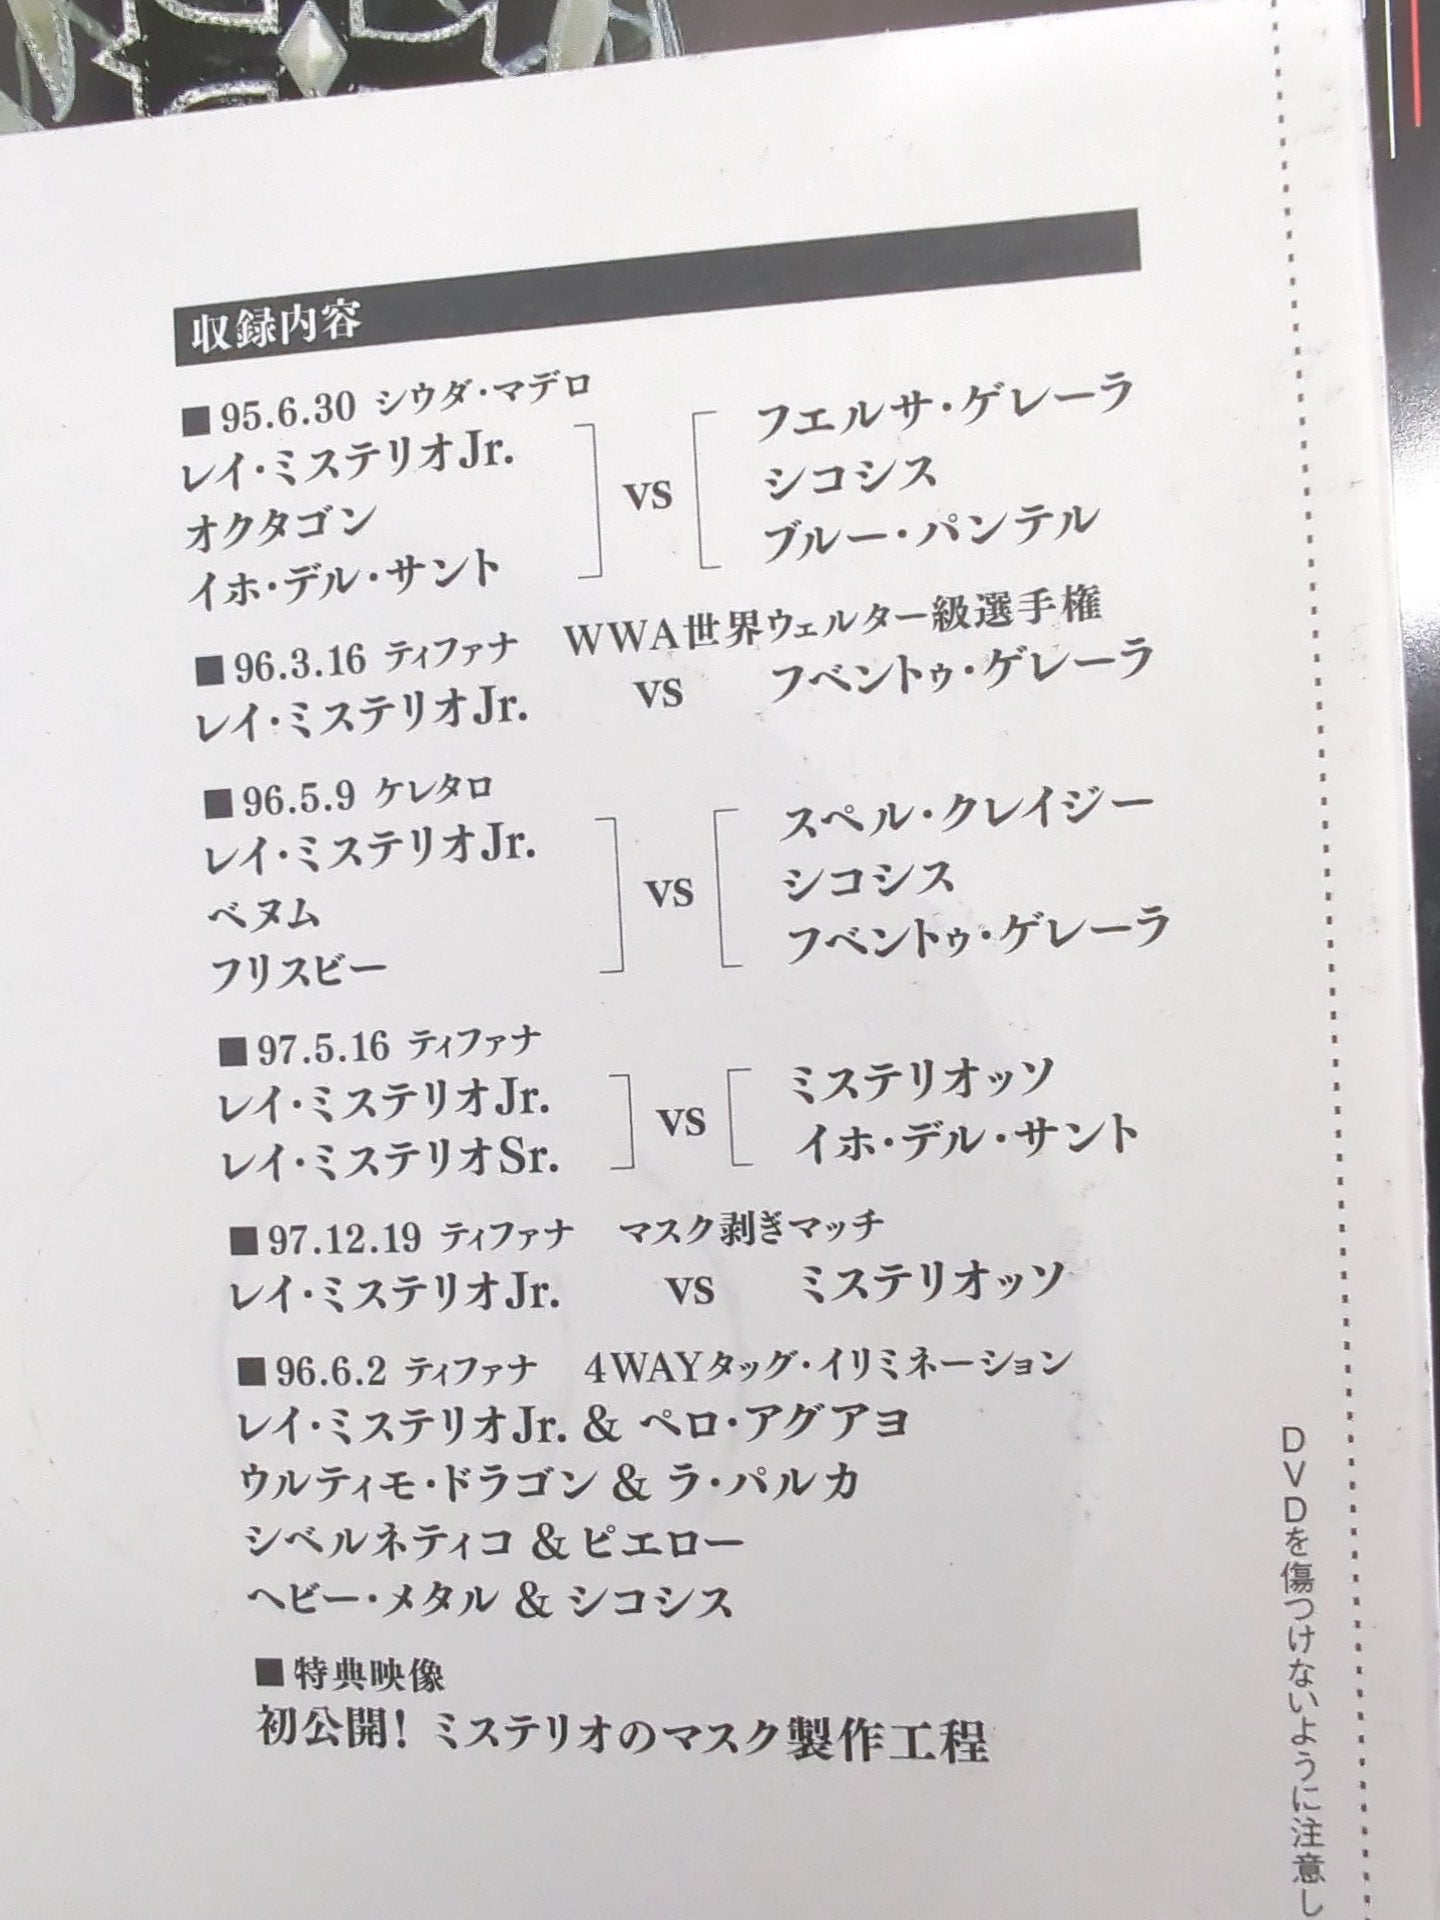 収録内容
■95.6.30 シウダ・マデロ
レイ・ミステリオJr.
オクタゴン
イホ・デル・サント
vs
フエルサ・ゲレーラ
シコシス
ブルー・パンテル
■96.3.16 ティファナ WWA世界ウェルター級選手権
レイ・ミステリオJr. vs フベントゥ・ゲレーラ
■96.5.9 ケレタロ
レイ・ミステリオJr.
ベヌム
フリスビー
vs
スペル・クレイジー
シコシス
フベントゥ・ゲレーラ
■97.5.16 ティファナ
レイ・ミステリオJr.
レイ・ミステリオSr.
vs
ミステリオッソ
イホ・デル・サント
■97.12.19 ティファナ マスク剥ぎマッチ
レイ・ミステリオJr. vs ミステリオッソ
■96.6.2 ティファナ 4WAYタッグ・イリミネーション
レイ・ミステリオJr. & ペロ・アグアヨ
ウルティモ・ドラゴン & ラ・パルカ
シベルネティコ & ピエロー
ヘビー・メタル & シコシス
■特典映像
初公開! ミステリオのマスク製作工程
DVDを傷つけないように注意し